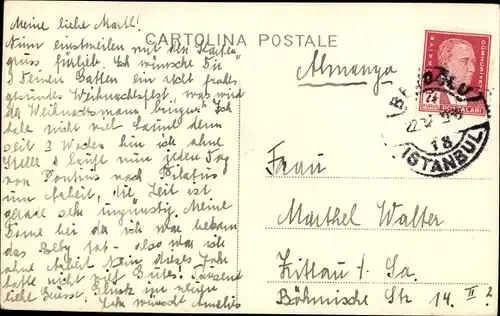 Meine liebe Martl!
Nimm einstweilen mit den Karten-
gruss fürlieb. Ich wünsche Dir
& Deinen Gatten ein recht frohes
gesundes Weihnachtsfest, was wird
der Weihnachtsmann bringen? Ich
habe nicht viel Laune denn
seit 3 Wochen bin ich ohne
Stelle & laufe nun jeden Tag
von Pontius nach Pilatus
um Arbeit, die Zeit ist
gerade sehr ungünstig. Meine
Dame bei der ich war bekam
das Beby fort - also war ich
ohne Arbeit. Nein dieses Jahr
hatte nicht viel Gutes! Tausend
liebe Grüsse, Glück im neuen
Jahr wünscht
CARTOLINA POSTALE
Almanya
POSTALARI
BEYOGLU
18
ISTANBUL
Frau
Marthel Walter
Zittau i. Sa.
Böhmische Str. 14. II